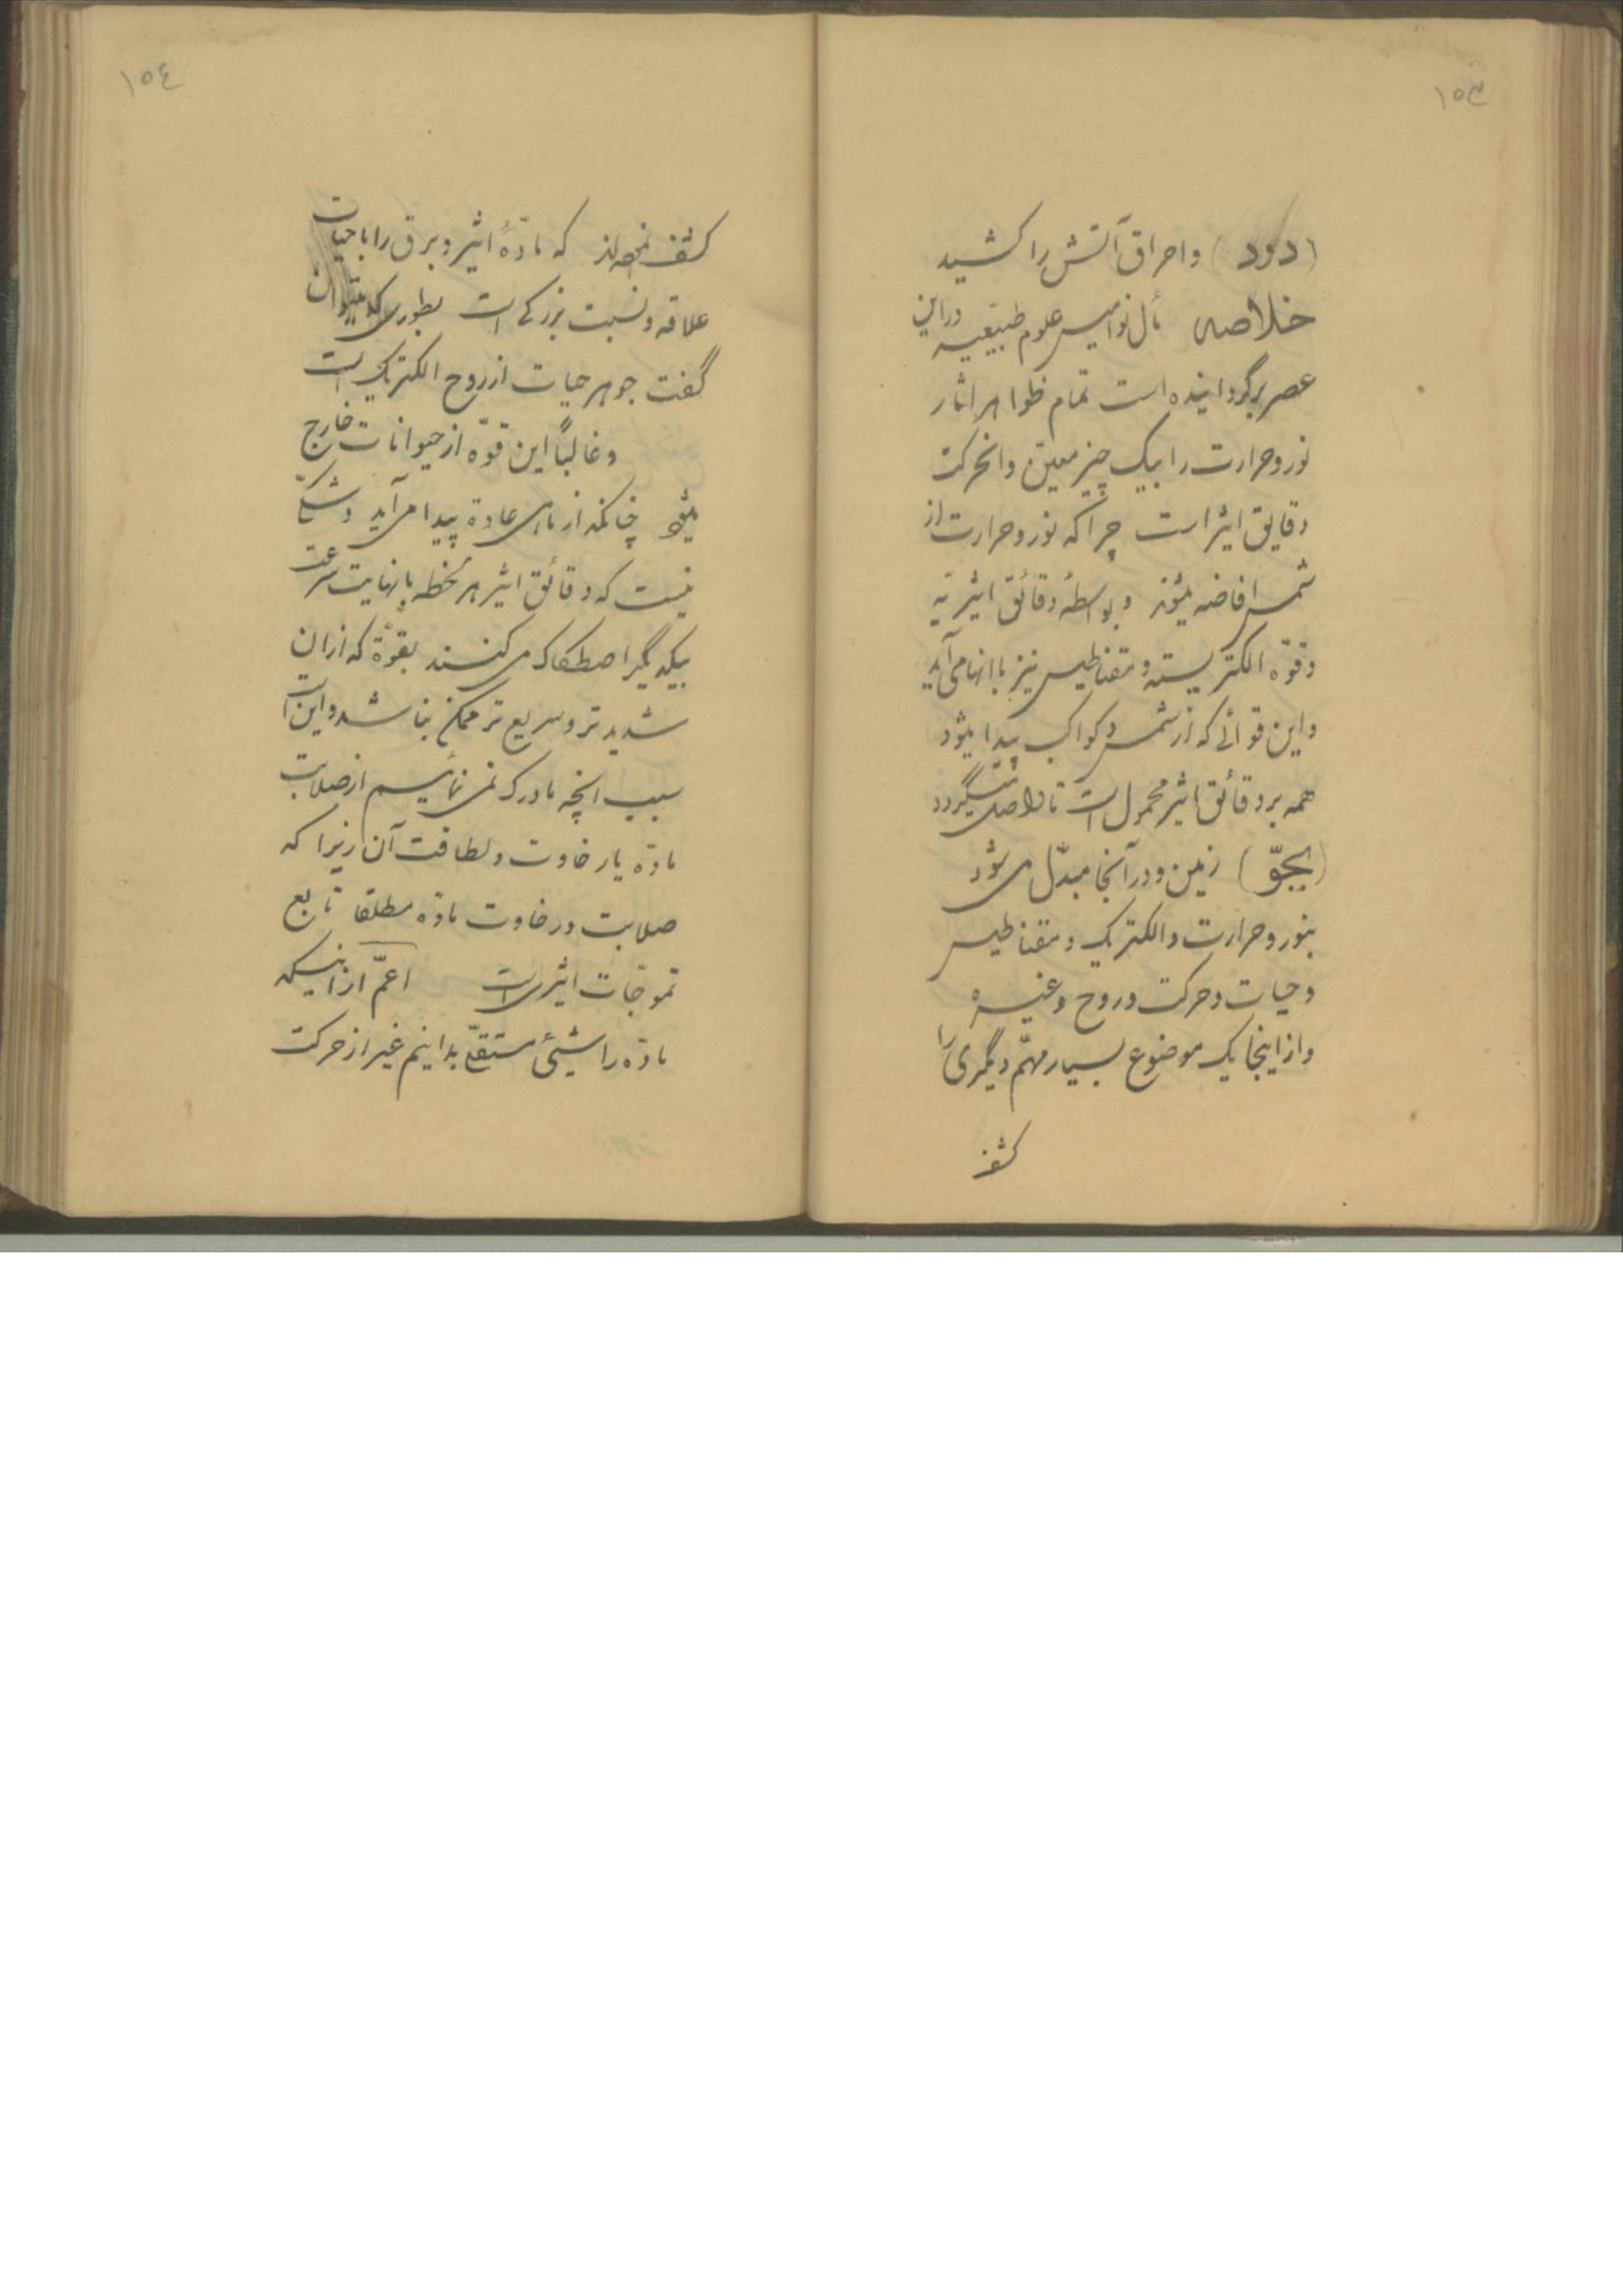 ١٥٣
(دود) واحراق آتش را کشید
خلاصه مآل نوامیس علوم طبیعیه دراین
عصر برگردانیده است تمام ظواهر اثار
نور وحرارت را بیک چیز معین وانحرکت
دقایق اثیر است چرا که نور وحرارت از
شمس افاضه میشوند وبواسطهٔ دقائق اثیریّه
وقوّه الکتریسته ومقناطیس نیز باانها می آید
واین قوائی که از شمس وکواکب پیدا میشود
همه بر دقائق اثیر محمول است تا واصل میگردد
(بجوّ) زمین ودر آنجا مبدّل می شود
بنور وحرارت والکتریک ومقناطیس
وحیات وحرکت وروح وغیره
واز اینجا یک موضوع بسیار مهمّ دیگری را
کشف
١٥٤
کشف که مادّهٔ اثیر وبرق را با حیات
علاقه ونسبت بزرگی است بطوری که میتوان
گفت جوهر حیات از روح الکتریک است
وغالباً این قوّه از حیوانات خارج
میشود چنانکه از ماهی عاده پیدا می آید وشکّی
نیست که دقائق اثیر هر لحظه با نهایت سرعت
بیکدیگر اصطکاک می کنند بقوّهٔ که ازان
شدید تر وسریع تر ممکن نباشد واین است
سبب انچه مادرک می نمائیم از صلابت
مادّه یا رخاوت ولطافت آن زیرا که
صلابت ورخاوت مادّه مطلقا تابع
تموجّات اثیری است اعمّ از اینکه
مادّه را شیئی مستقلّ بدانیم غیر از حرکت